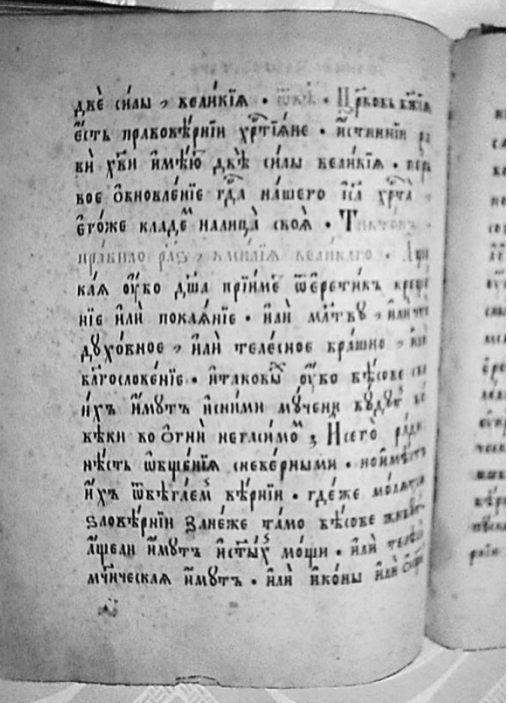 двѐ си́лы , вели́кїѧ . ѿвѣ́. Цр҃ковь бж҃їѧ
є҆́сть правовѣ́рнїи хрⷭ҇тїѧ́не . и҆́стиннїи ра
бѝ хв҃ы и҆мѣ́ю двѣ̀ си́лы вели́кїѧ . пер
вое ѻ҆бновле́нїе гдⷭ҇а на́шего і҆с҃а хрⷭ҇та̀ ,
є҆го́же кладе́м налица̀ своѧ̀ .
пра́вило васи́лїѧ вели́каго .
каѧ ᲂу҆́бо дш҃а̀ прїи́ме ѿѐретик креще
нїе и҆лѝ покаѧ́нїе . и҆лѝ млт҃вꙋ ,
дꙋхо́вное , и҆лѝ теле́сное бра́шно , и҆лѝ
блг҃ослове́нїе . и҆таковы́ ᲂу҆́бо бѣ́сове сві
и҆́хъ и҆́мꙋтъ и҆сни́ми мꙋ́чени бꙋ́дꙋт во
вѣ́ки во ѻ҆гнѝ негаси́мом ; И҆сегѡ̀ ра́ди
нѣ́сть ѡ҆бще́нїѧ сневѣ́рными .
и҆́хъ ѿбѣ́гаем вѣ́рнїи . гдѣ́же мо́лѧтсѧ
ѕловѣ́рнїи Зане́же та́мо бѣ́сове живꙋ́т
а҆́щели и҆́мꙋтъ и҆ст҃ы́х мо́щи . и҆лѝ телеса̀
мч҃ническаѧ и҆́мꙋтъ . и҆лѝ и҆ко́ны и҆лѝ